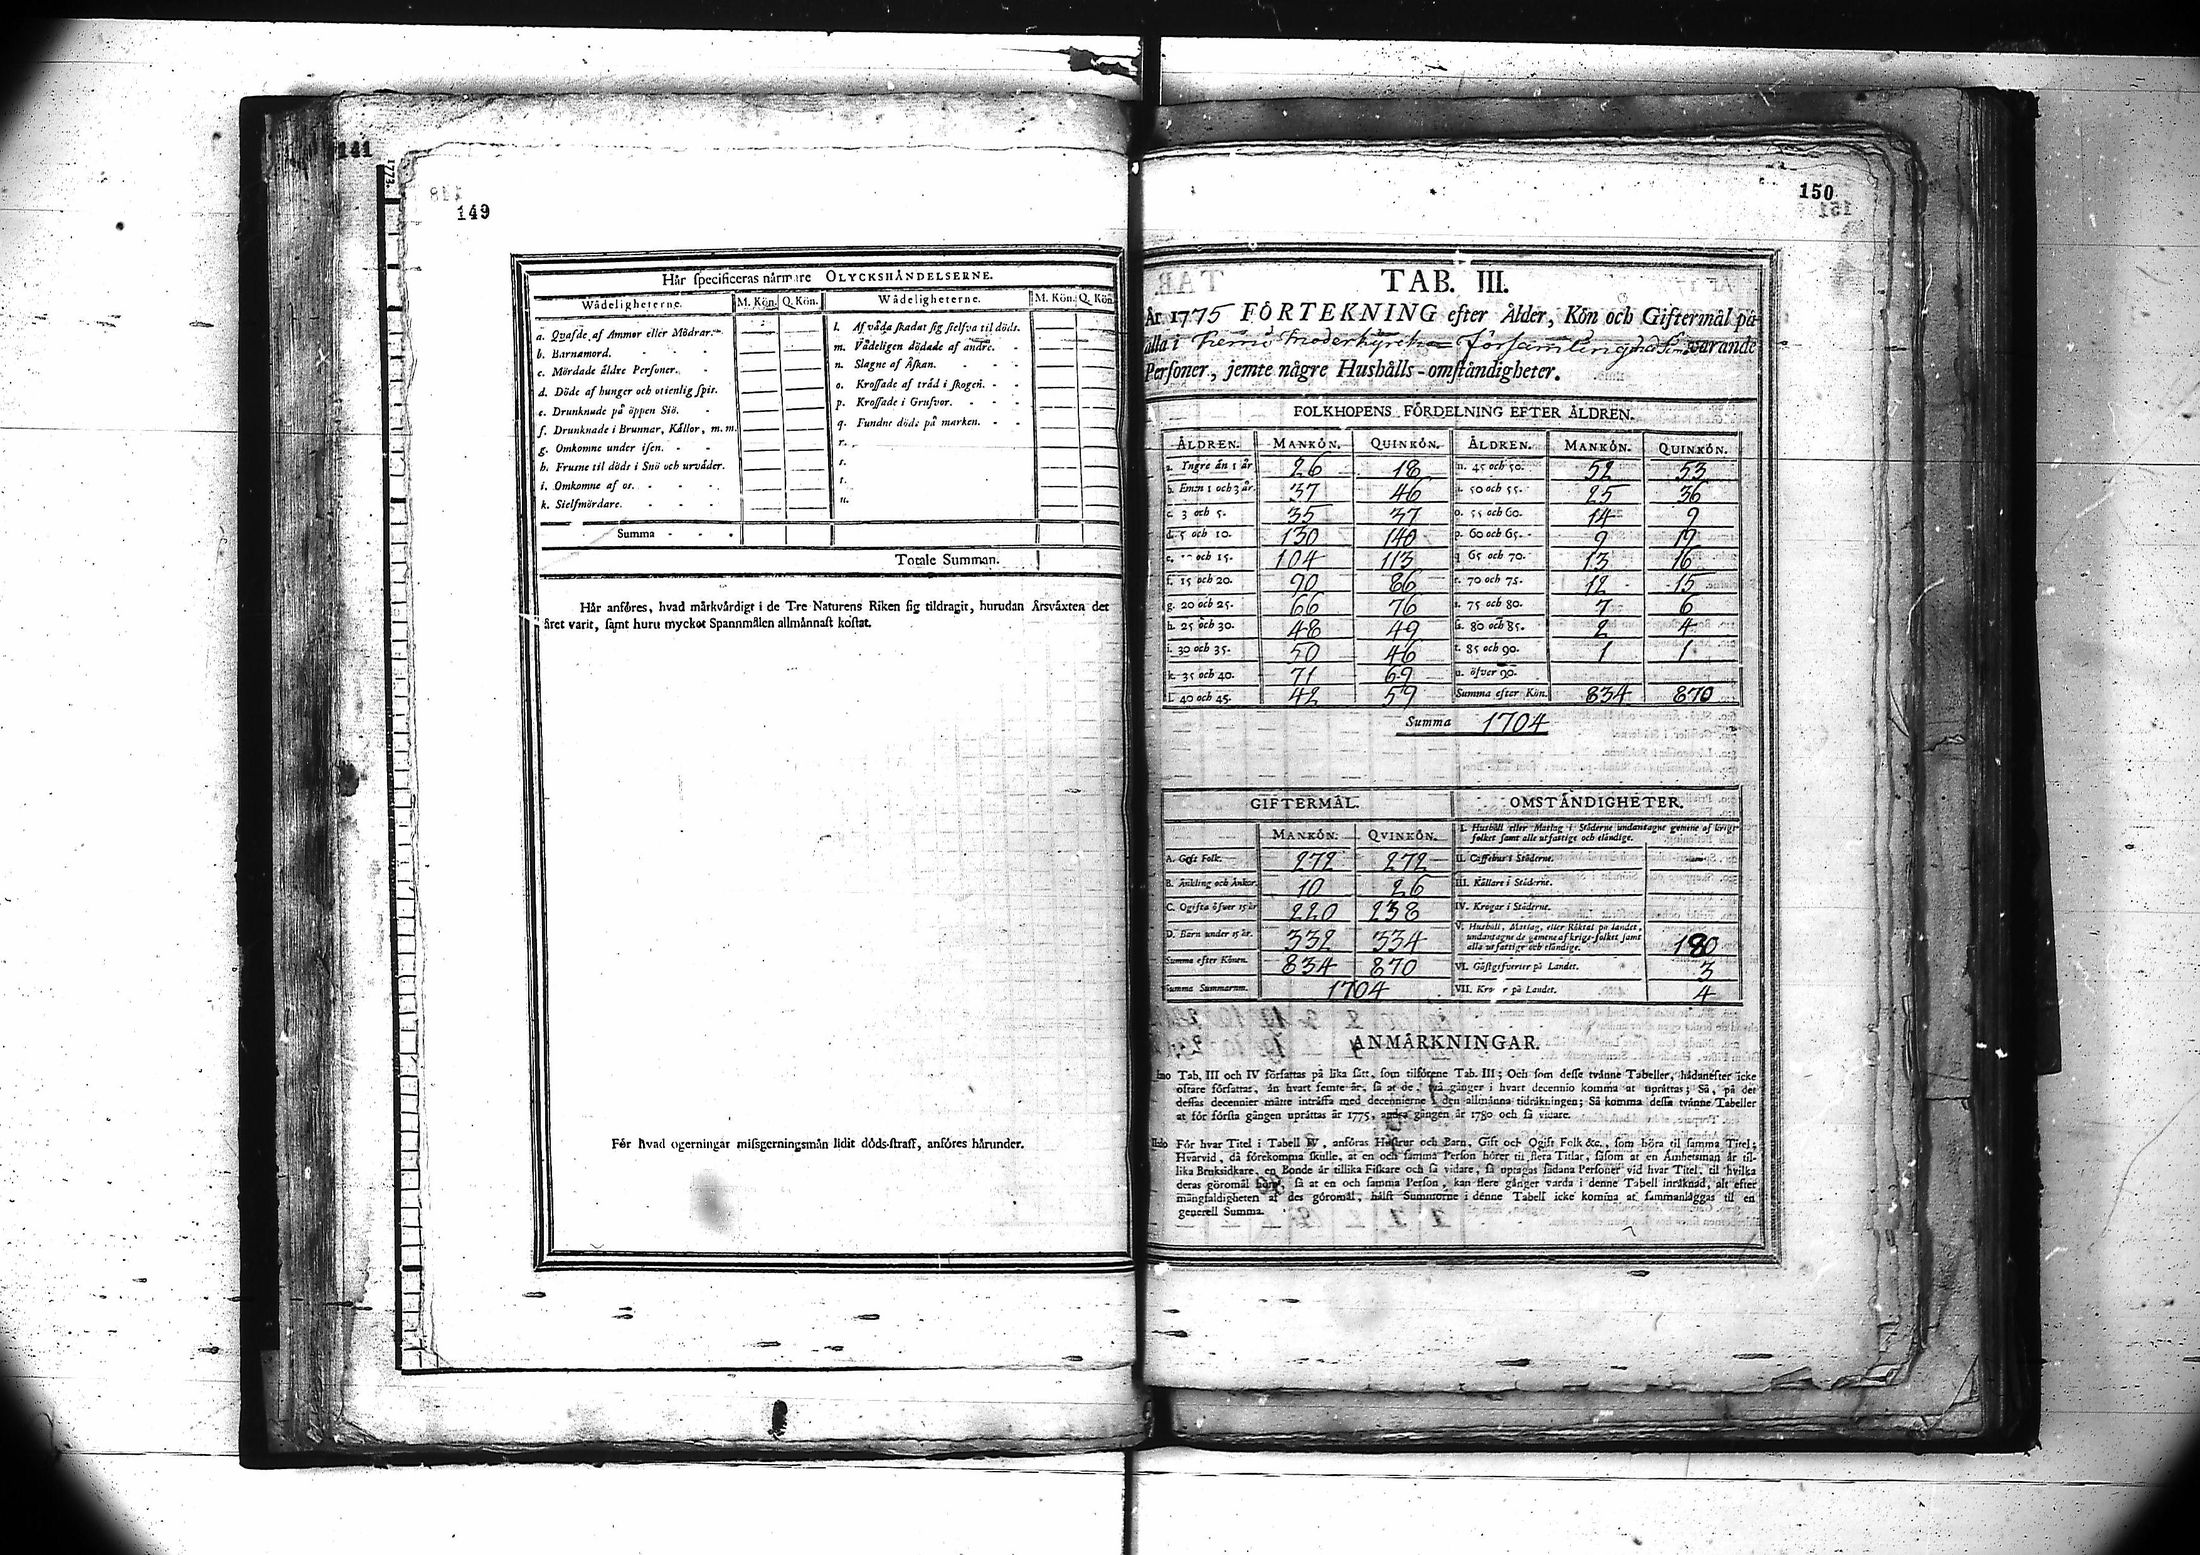 141
1773.
149
Hår specificeras nårmare OLYCKSHÅNDELSERNE.
Wådeligheterne. M. Kön. Q. Kön. Wådeligheterne. M. Kön. Q. Kön.
a. Qvafde af Ammor eller Mödrar. l. Af våda skadat sig sielfva til döds.
b. Barnamord. m. Vådeligen dödade af andre.
c. Mördade äldre Personer. n. Slagne af Åskan.
d. Döde af hunger och otienlig spis. o. Krossade af träd i skogen.
e. Drunknade på öppen Siö. p. Krossade i Grufvor.
f. Drunknade i Brunnar, Källor, m. m. q. Fundne döde på marken.
g. Omkomne under isen. r.
h. Frusne til döds i Snö och urväder. s.
i. Omkomne af os. t.
k. Sielfmördare. u.
Summa
Totale Summan.
Hår anföres, hvad mårkvårdigt i de Tre Naturens Riken sig tildragit, hurudan Årsväxten det
året varit, samt huru mycket Spannmålen allmånnast kostat.
Fór hvad ogerningar missgerningsmån lidit döds-straff, anföres hårunder.
150
TAB. III.
År 1775 FÖRTEKNING efter Ålder, Kön och Giftermål på
alla i Kemi Moderkyrko församling varande
Personer, jemte någre Hushålls-omståndigheter.
FOLKHOPENS FÖRDELNING EFTER ÅLDREN.
ÅLDREN. MANKÖN. QUINKÖN. ÅLDREN. MANKÖN. QUINKÖN.
a. Yngre än 1 år 26 18 m. 45 och 50. 52 53
b. Emn 1 och 3 år. 37 46 n. 50 och 55. 25 36
c. 3 och 5. 35 37 o. 55 och 60. 14 9
d. 5 och 10. 130 140 p. 60 och 65. 9 19
e. och 15. 104 113 q. 65 och 70. 13 16
f. 15 och 20. 90 86 r. 70 och 75. 12 15
g. 20 och 25. 66 76 s. 75 och 80. 7 6
h. 25 och 30. 48 49 80 och 85. 2 4
i. 30 och 35. 50 46 t. 85 och 90. 1 1
k. 35 och 40. 71 69 u. öfver 90.
l. 40 och 45. 42 59 Summa efter Kön. 834 870
Summa 1704
GIFTERMÅL. OMSTÄNDIGHETER.
MANKÖN. QVINKÖN. I. Hushåll eller Matlag i Städerne undantagne gemene af krigs-
folket samt alle utfattige och eländige.
A. Gift Folk. 272 272 II. Caffehus i Städerne.
B. Änkling och Änkor. 10 26 III. Källare i Städerne.
C. Ogifta öfver 15 år 220 238 IV. Krogar i Städerne.
D. Barn under 15 år. 332 334 V. Hushåll, Matlag, eller Röktal på landet,
undantagne de gemene af krigs-folket samt
alla utfattige och eländige. 180
Summa efter Könen. 834 870 VI. Gästgifverier på Landet. 3
Summa Summarum. 1704 VII. Krogar på Landet. 4
ANMÄRKNINGAR.
Imo Tab. III och IV författas på lika sått, som tilförene Tab. III; Och som desse tvånne Tabeller, hådanefter icke
oftare författas, än hvart femte år, så at de två gånger i hvart decennio komma at upråttas; Så, på det
dessas decennier måtte intråffa med decennierne i den allmånna tidråkningen; Så komma dessa tvånne Tabeller
at för första gången upråttas år 1775, andra gången år 1780 och så vidare.
IIdo Fór hvar Titel i Tabell IV, anföras Hustrur och Barn, Gift och Ogift Folk &c., som höra til samma Titel;
Hvarvid, då förekomma skulle, at en och samma Person hörer til flera Titlar, såsom at en Ämbetsman är til-
lika Bruksidkare, en Bonde är tillika Fiskare och så vidare, så uptagas sådana Personer vid hvar Titel, til hvilka
deras göromål höra, så at en och samma Person, kan flere gånger varda i denne Tabell inräknad, alt efter
mångfaldigheten af des göromål, hålst Summorne i denne Tabell icke komma at sammanläggas til en
generell Summa.